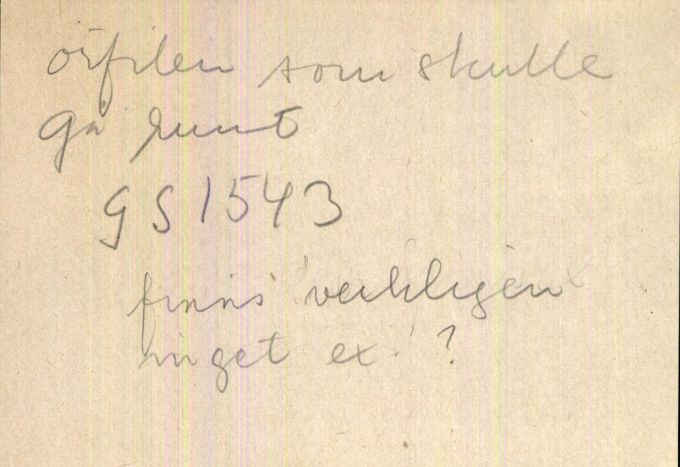 örfilen som skulle
gå runt
GS 1543
finns verkligen
inget ex.?